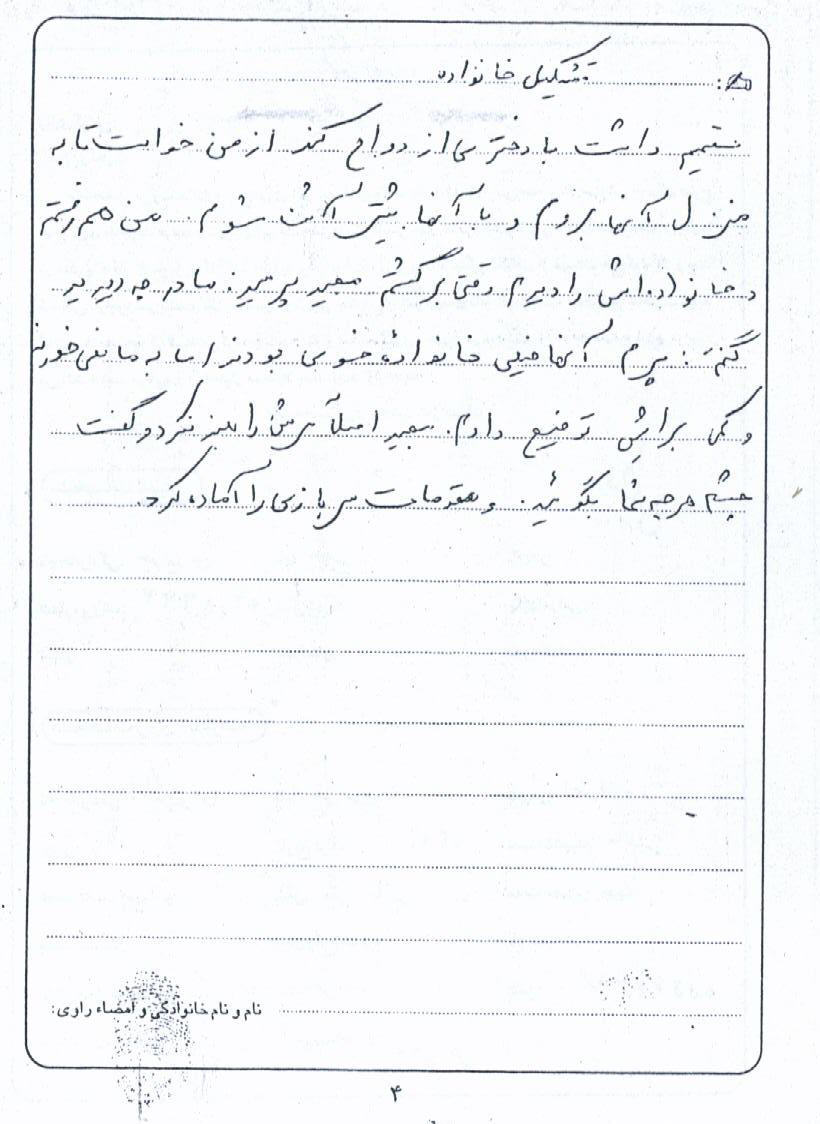 تشکیل خانواده
تصمیم داشت با دختری ازدواج کند از من خواست تا به
منزل آنها بروم و با آنها بیشتر آشنا شوم. من هم رفتم
و خانواده‌اش را دیدم وقتی برگشتم سعید پرسید: مادر چه دیدید
گفتم: پسرم آنها خیلی خانوادهٔ خوبی بودند اما به ما نمی‌خورند
و کمی برایش توضیع دادم. سعید اصلاً سرش را بلند نکرد و گفت
چشم هرچه شما بگوئید. و مقدمات سربازی را آماده کرد.
نام و نام خانوادگی و امضاء راوی:
۴